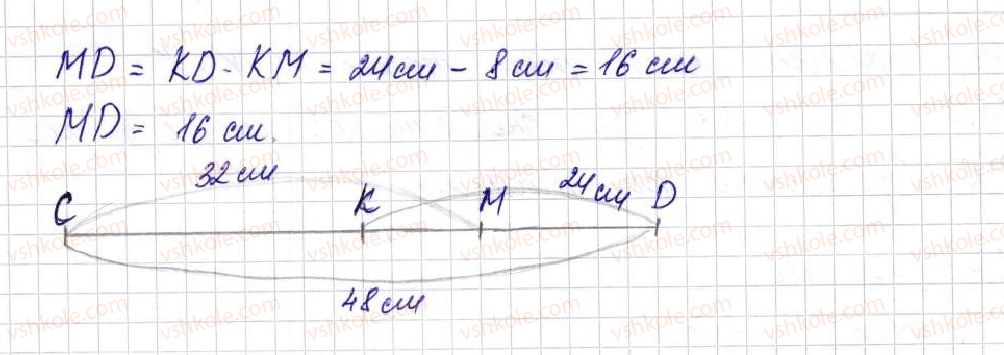 MD = KD - KM = 24 см - 8 см = 16 см
MD = 16 см.
32 см
24 см
C K M D
48 см
vshkole.com